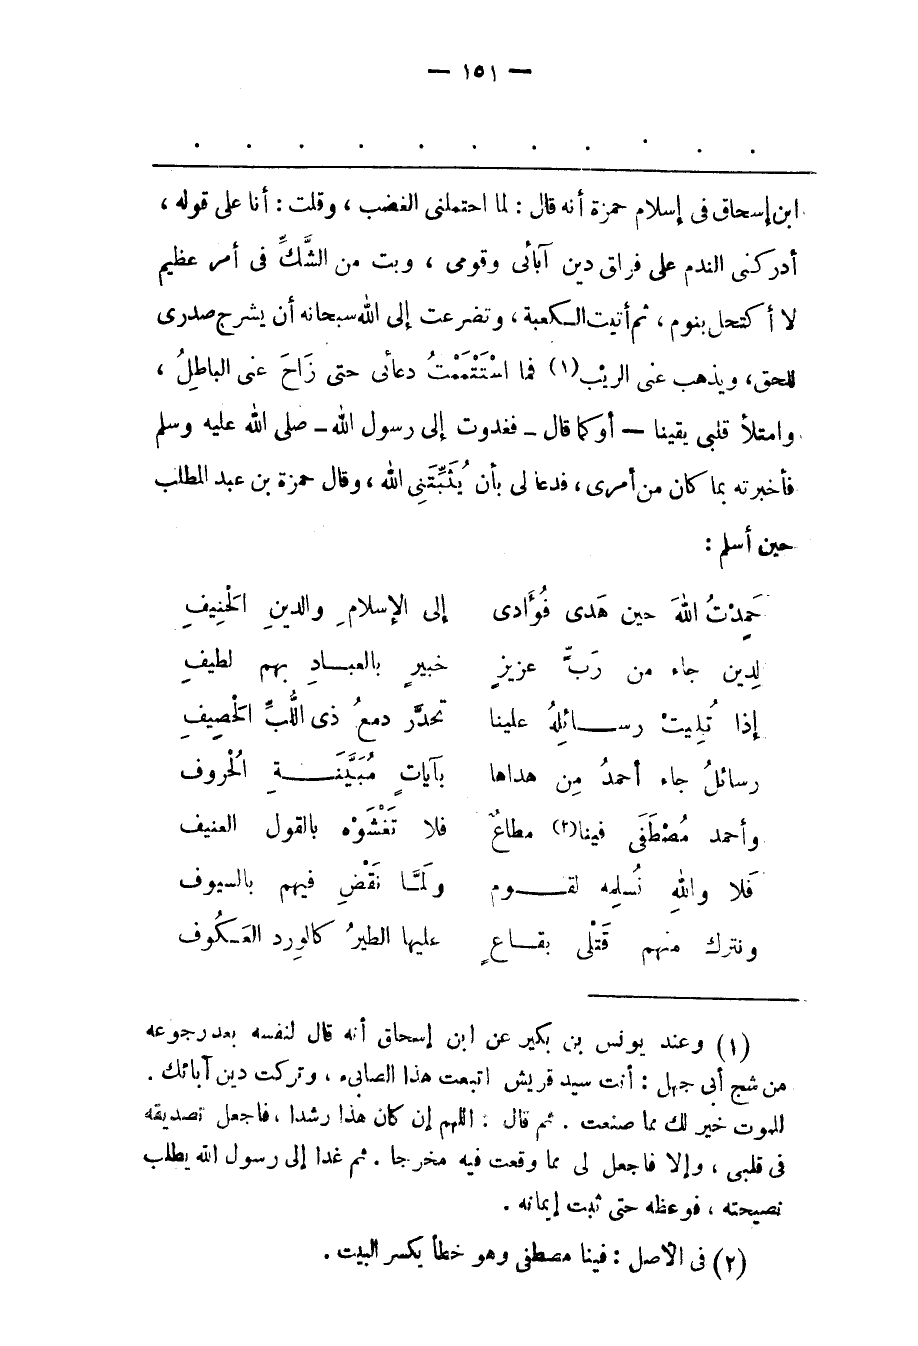 — ١٥١ —
ابن إسحاق فى إسلام حمزة أنه قال : لما احتملنى الغضب ، وقلت : أنا على قوله ،
أدركنى الندم على فراق دين آبائى وقومى ، وبت من الشَّكِّ فى أمر عظيم
لا أكتحل بنوم ، ثم أتيت الكعبة ، وتضرعت إلى الله سبحانه أن يشرح صدرى
للحق، ويذهب عنى الريْب(١) فما اسْتَتْمَمْتُ دعائى حتى زَاحَ عنى الباطلُ ،
وامتلأ قلبى يقينا — أو كما قال - فغدوت إلى رسول الله - صلى الله عليه وسلم
فأخبرته بما كان من أمرى ، فدعا لى بأن يُثَبِّتَنِى الله ، وقال حمزة بن عبد المطلب
حين أسلم :
حَمِدْتُ اللهَ حين هَدى فُؤَادى إلى الإسلامِ والدينِ الحْنِيفِ
لِدِين جاء من رَبٍّ عزيزٍ خبيرٍ بالعبادِ بهم لطيفِ
إذا تُلِيتْ رسائلِهُ علينا تحدَّر دمعُ ذى اللُّبِّ الحْصِيفِ
رسائلُ جاء أحمدُ مِن هداها بآياتٍ مُبَيَّنَةِ الحُروف
وأحمد مُصْطَفَى فينا(٢) مطاعٌ فلا تَغْشَوْه بالقول العنيف
فَلا واللهِ نُسلِمه لقوم ولَمَّا نَقْضِ فيهم بالسيوف
ونترك منهم قَتْلى بقاعٍ عليها الطيرُ كالوِرد العَكُوف
(١) وعند يونس بن بكير عن ابن إسحاق أنه قال لنفسه بعد رجوعه
من شج أبى جهل : أنت سيد قريش اتبعت هذا الصابىء ، وتركت دين آبائك .
للموت خير لك مما صنعت . ثم قال : اللهم إن كان هذا رشدا ، فاجعل تصديقه
فى قلبى ، وإلا فاجعل لى مما وقعت فيه مخرجا . ثم غدا إلى رسول الله يطلب
نصيحته ، فوعظه حتى ثبت إيمانه .
(٢) فى الأصل : فينا مصطفى وهو خطأ يكسر البيت .